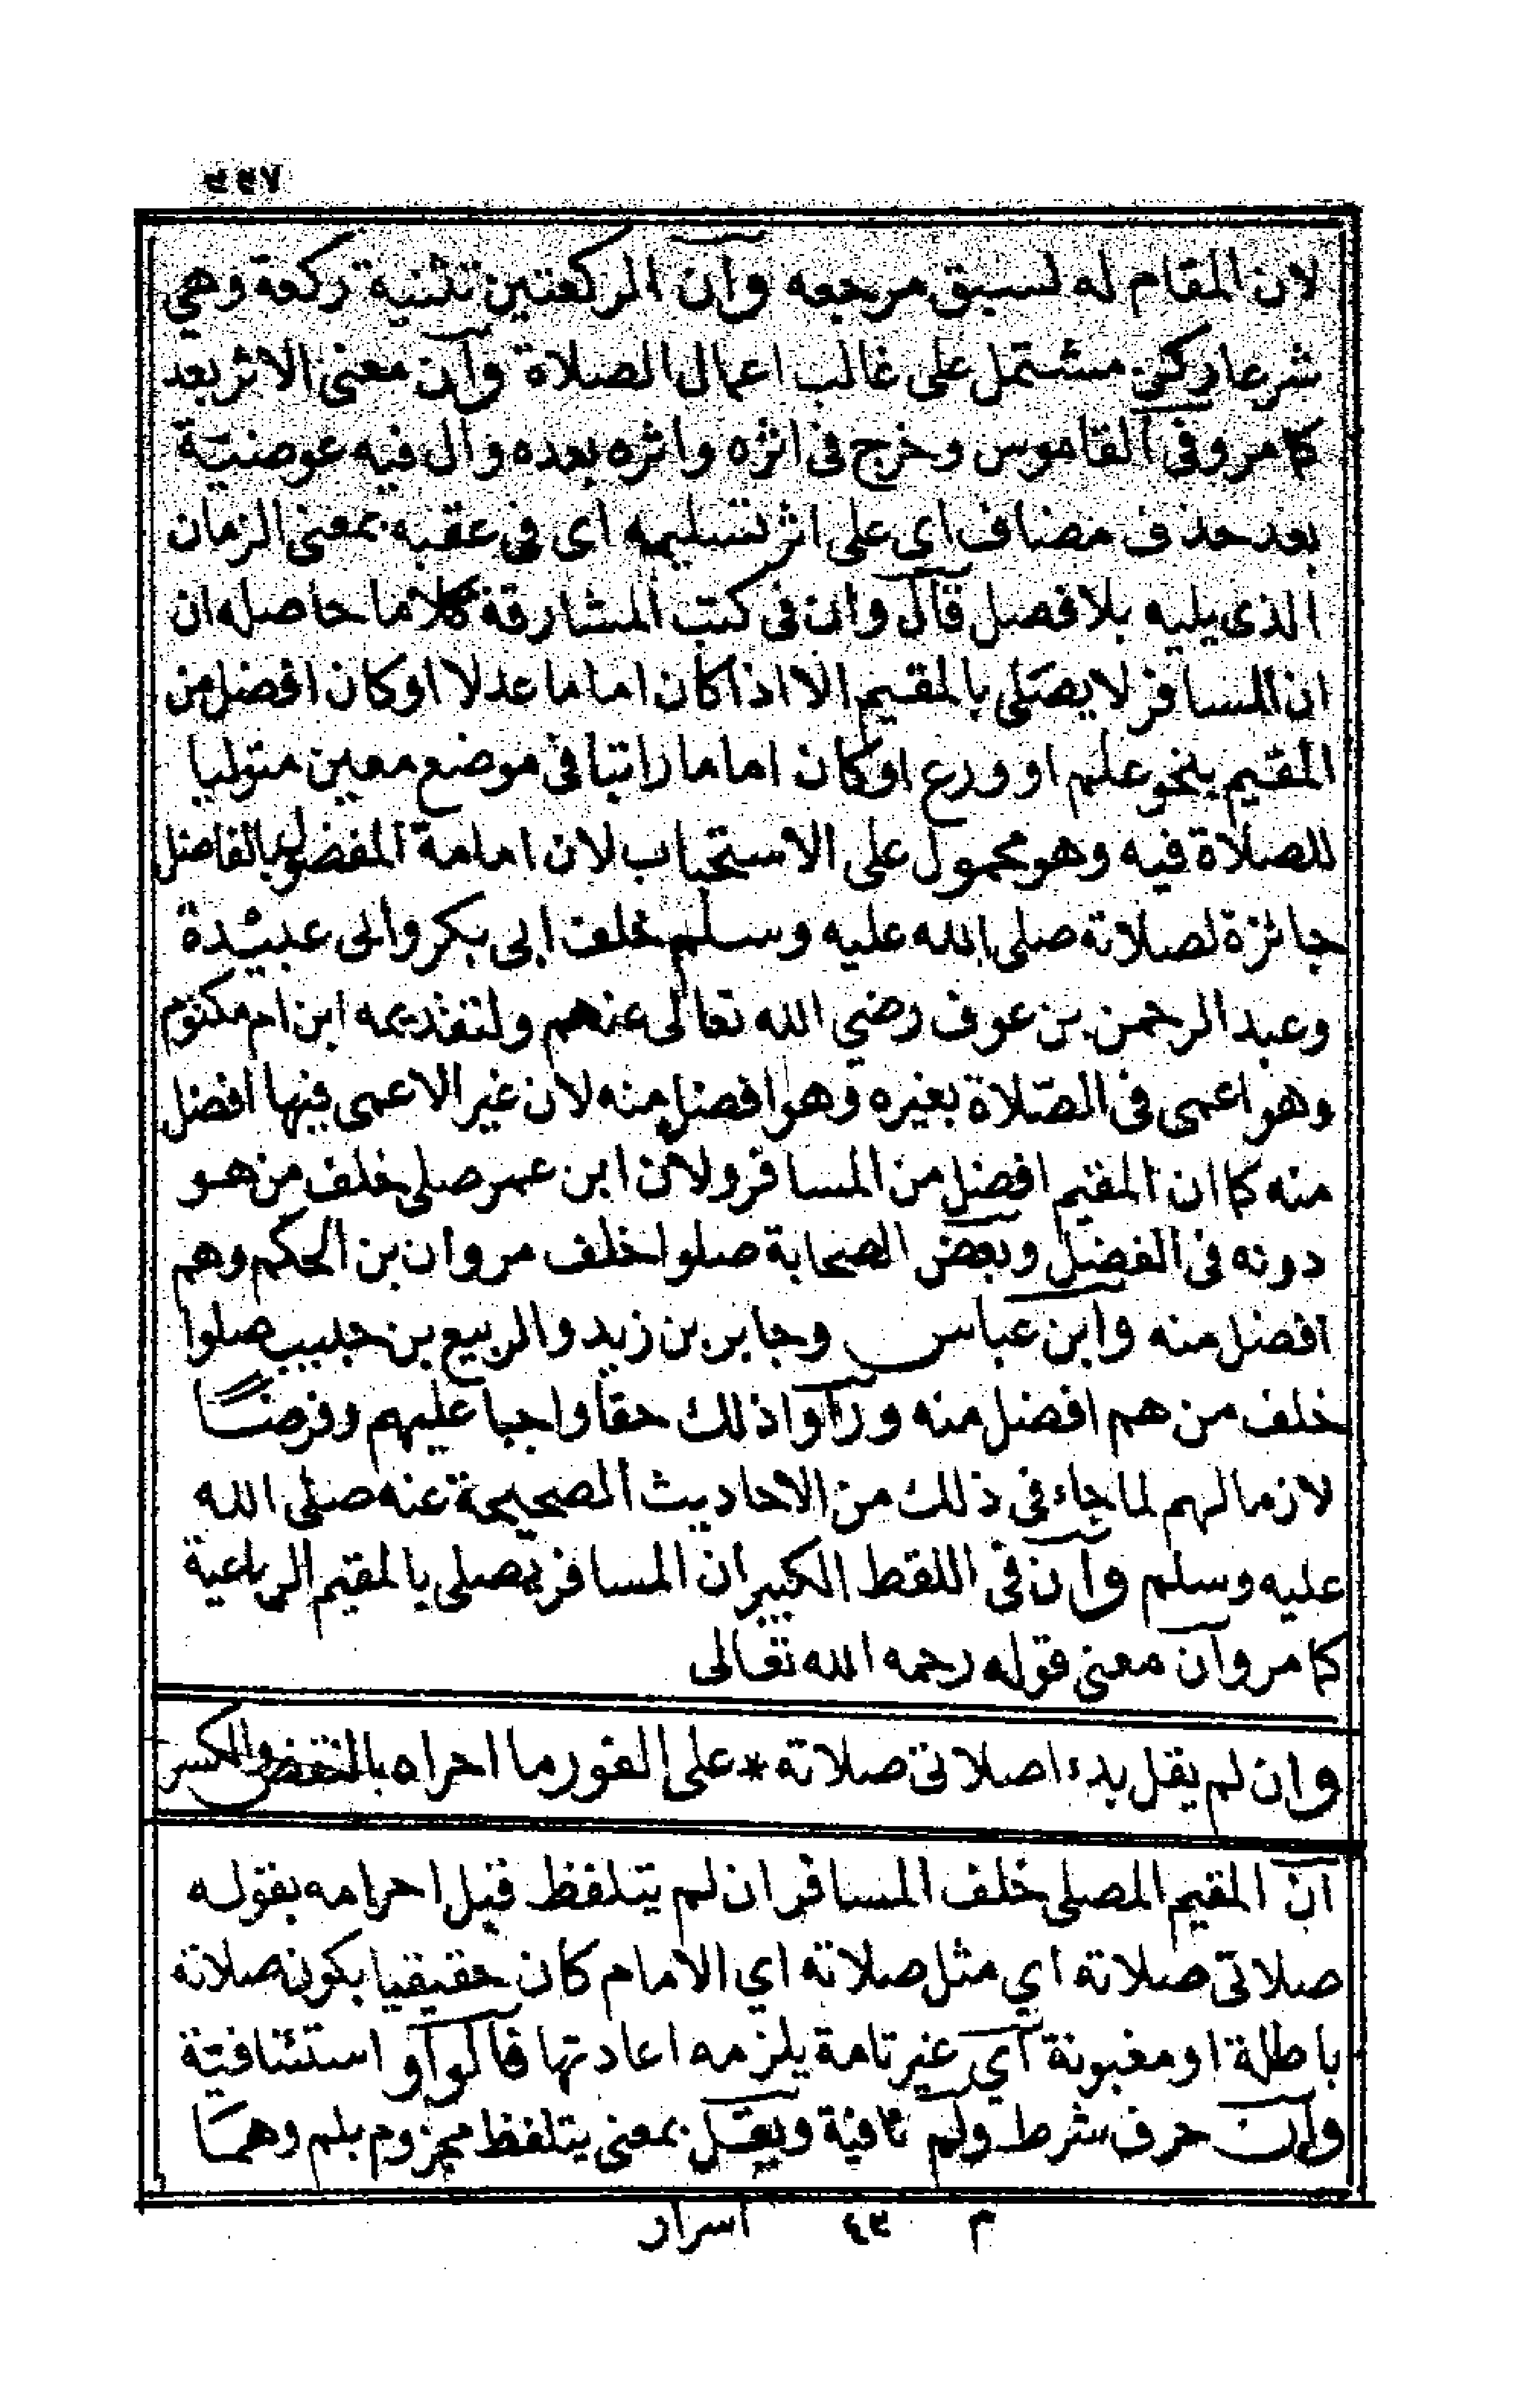 لان المقام له لسبق مرجعه وان الركعتين تثنية ركعة وهي
شرعا ركن مشتمل على غالب اعمال الصلاة وان معنى الاثر بعد
كما مر وفى القاموس وخرج فى اثره واثره بعده وال فيه عوضية
بعد حذف مضاف اى على اثر تسليمه اى فى عقبه بمعنى الزمان
الذى يليه بلا فصل قال وان فى كتب المشارقة كلاما حاصله ان
ان المسافر لا يصلى بالمقيم الا اذا كان اماما عدلا او كان افضل من
المقيم بنحو علم او ورع او كان اماما راتبا فى موضع معين متوليا
للصلاة فيه وهو محمول على الاستحباب لان امامة المفضول بالفاضل
جائزة لصلاته صلى الله عليه وسلم خلف ابى بكر وابى عبيدة
وعبد الرحمن بن عوف رضي الله تعالى عنهم ولتقديمه ابن ام مكتوم
وهو اعمى فى الصلاة بغيره وهو افضل منه لان غير الاعمى فيها افضل
منه كما ان المقيم افضل من المسافر ولان ابن عمر صلى خلف من هو
دونه فى الفضل وبعض الصحابة صلوا خلف مروان بن الحكم وهم
افضل منه وابن عباس وجابر بن زيد والربيع بن حبيب صلوا
خلف من هم افضل منه وراوا ذلك حقا واجبا عليهم وفرضا
لازما لهم لما جاء فى ذلك من الاحاديث الصحيحة عنه صلى الله
عليه وسلم وان فى اللقط الكبير ان المسافر يصلى بالمقيم الرباعية
كما مر وان معنى قوله رحمه الله تعالى
وان لم يقل بدء اصلاتى صلاته * على الفور ما احراه بالنقض والكسر
ان المقيم المصلى خلف المسافر ان لم يتلفظ قبل احرامه بقوله
صلاتى صلاته اي مثل صلاته اي الامام كان حقيقيا بكون صلاته
باطلة او مغبونة اي غير تامة يلزمه اعادتها فالواو استئنافية
وان حرف شرط ولم نافية ويقل بمعنى يتلفظ مجزوم بلم وهما
م ٤٣ اسرار